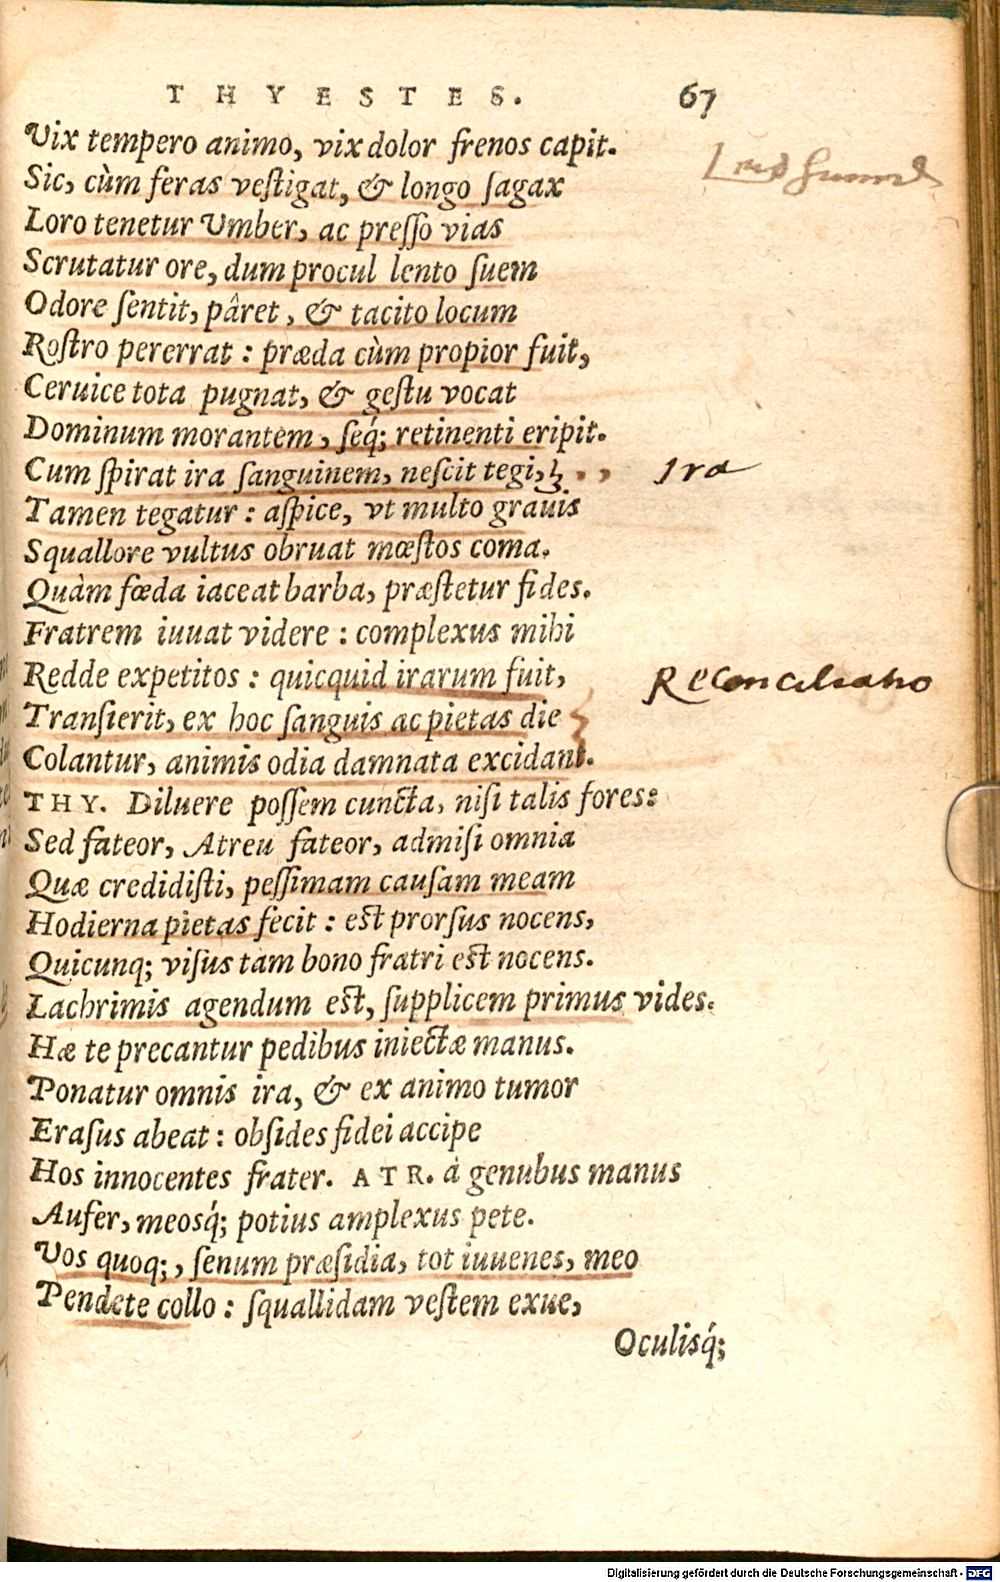 THYESTES. 67
Vix tempero animo, vix dolor frenos capit.
Sic, cùm feras veſtigat, & longo ſagax
Loro tenetur Vmber, ac preſſo vias
Scrutatur ore, dum procul lento ſuem
Odore ſentit, pâret, & tacito locum
Roſtro pererrat : præda cùm propior fuit,
Ceruice tota pugnat, & geſtu vocat
Dominum morantem, ſeq́; retinenti eripit.
Cum ſpirat ira ſanguinem, neſcit tegi,
Ira
Tamen tegatur : aſpice, vt multo grauis
Squallore vultus obruat mœſtos coma.
Quàm fœda iaceat barba, præſtetur fides.
Fratrem iuuat videre : complexus mihi
Redde expetitos : quicquid irarum fuit,
Reconciliatio
Tranſierit, ex hoc ſanguis ac pietas die
Colantur, animis odia damnata excidant.
THY. Diluere poſſem cuncta, niſi talis fores:
Sed fateor, Atreu fateor, admiſi omnia
Quæ credidiſti, peſſimam cauſam meam
Hodierna pietas fecit : eſt prorſus nocens,
Quicunq; viſus tam bono fratri eſt nocens.
Lachrimis agendum eſt, ſupplicem primus vides.
Hæ te precantur pedibus iniectæ manus.
Ponatur omnis ira, & ex animo tumor
Eraſus abeat : obſides fidei accipe
Hos innocentes frater. ATR. à genubus manus
Aufer, meosq́; potius amplexus pete.
Vos quoq;, ſenum præſidia, tot iuuenes, meo
Pendete collo : ſquallidam veſtem exue,
Oculisq́;
Digitalisierung gefördert durch die Deutsche Forschungsgemeinschaft - DFG